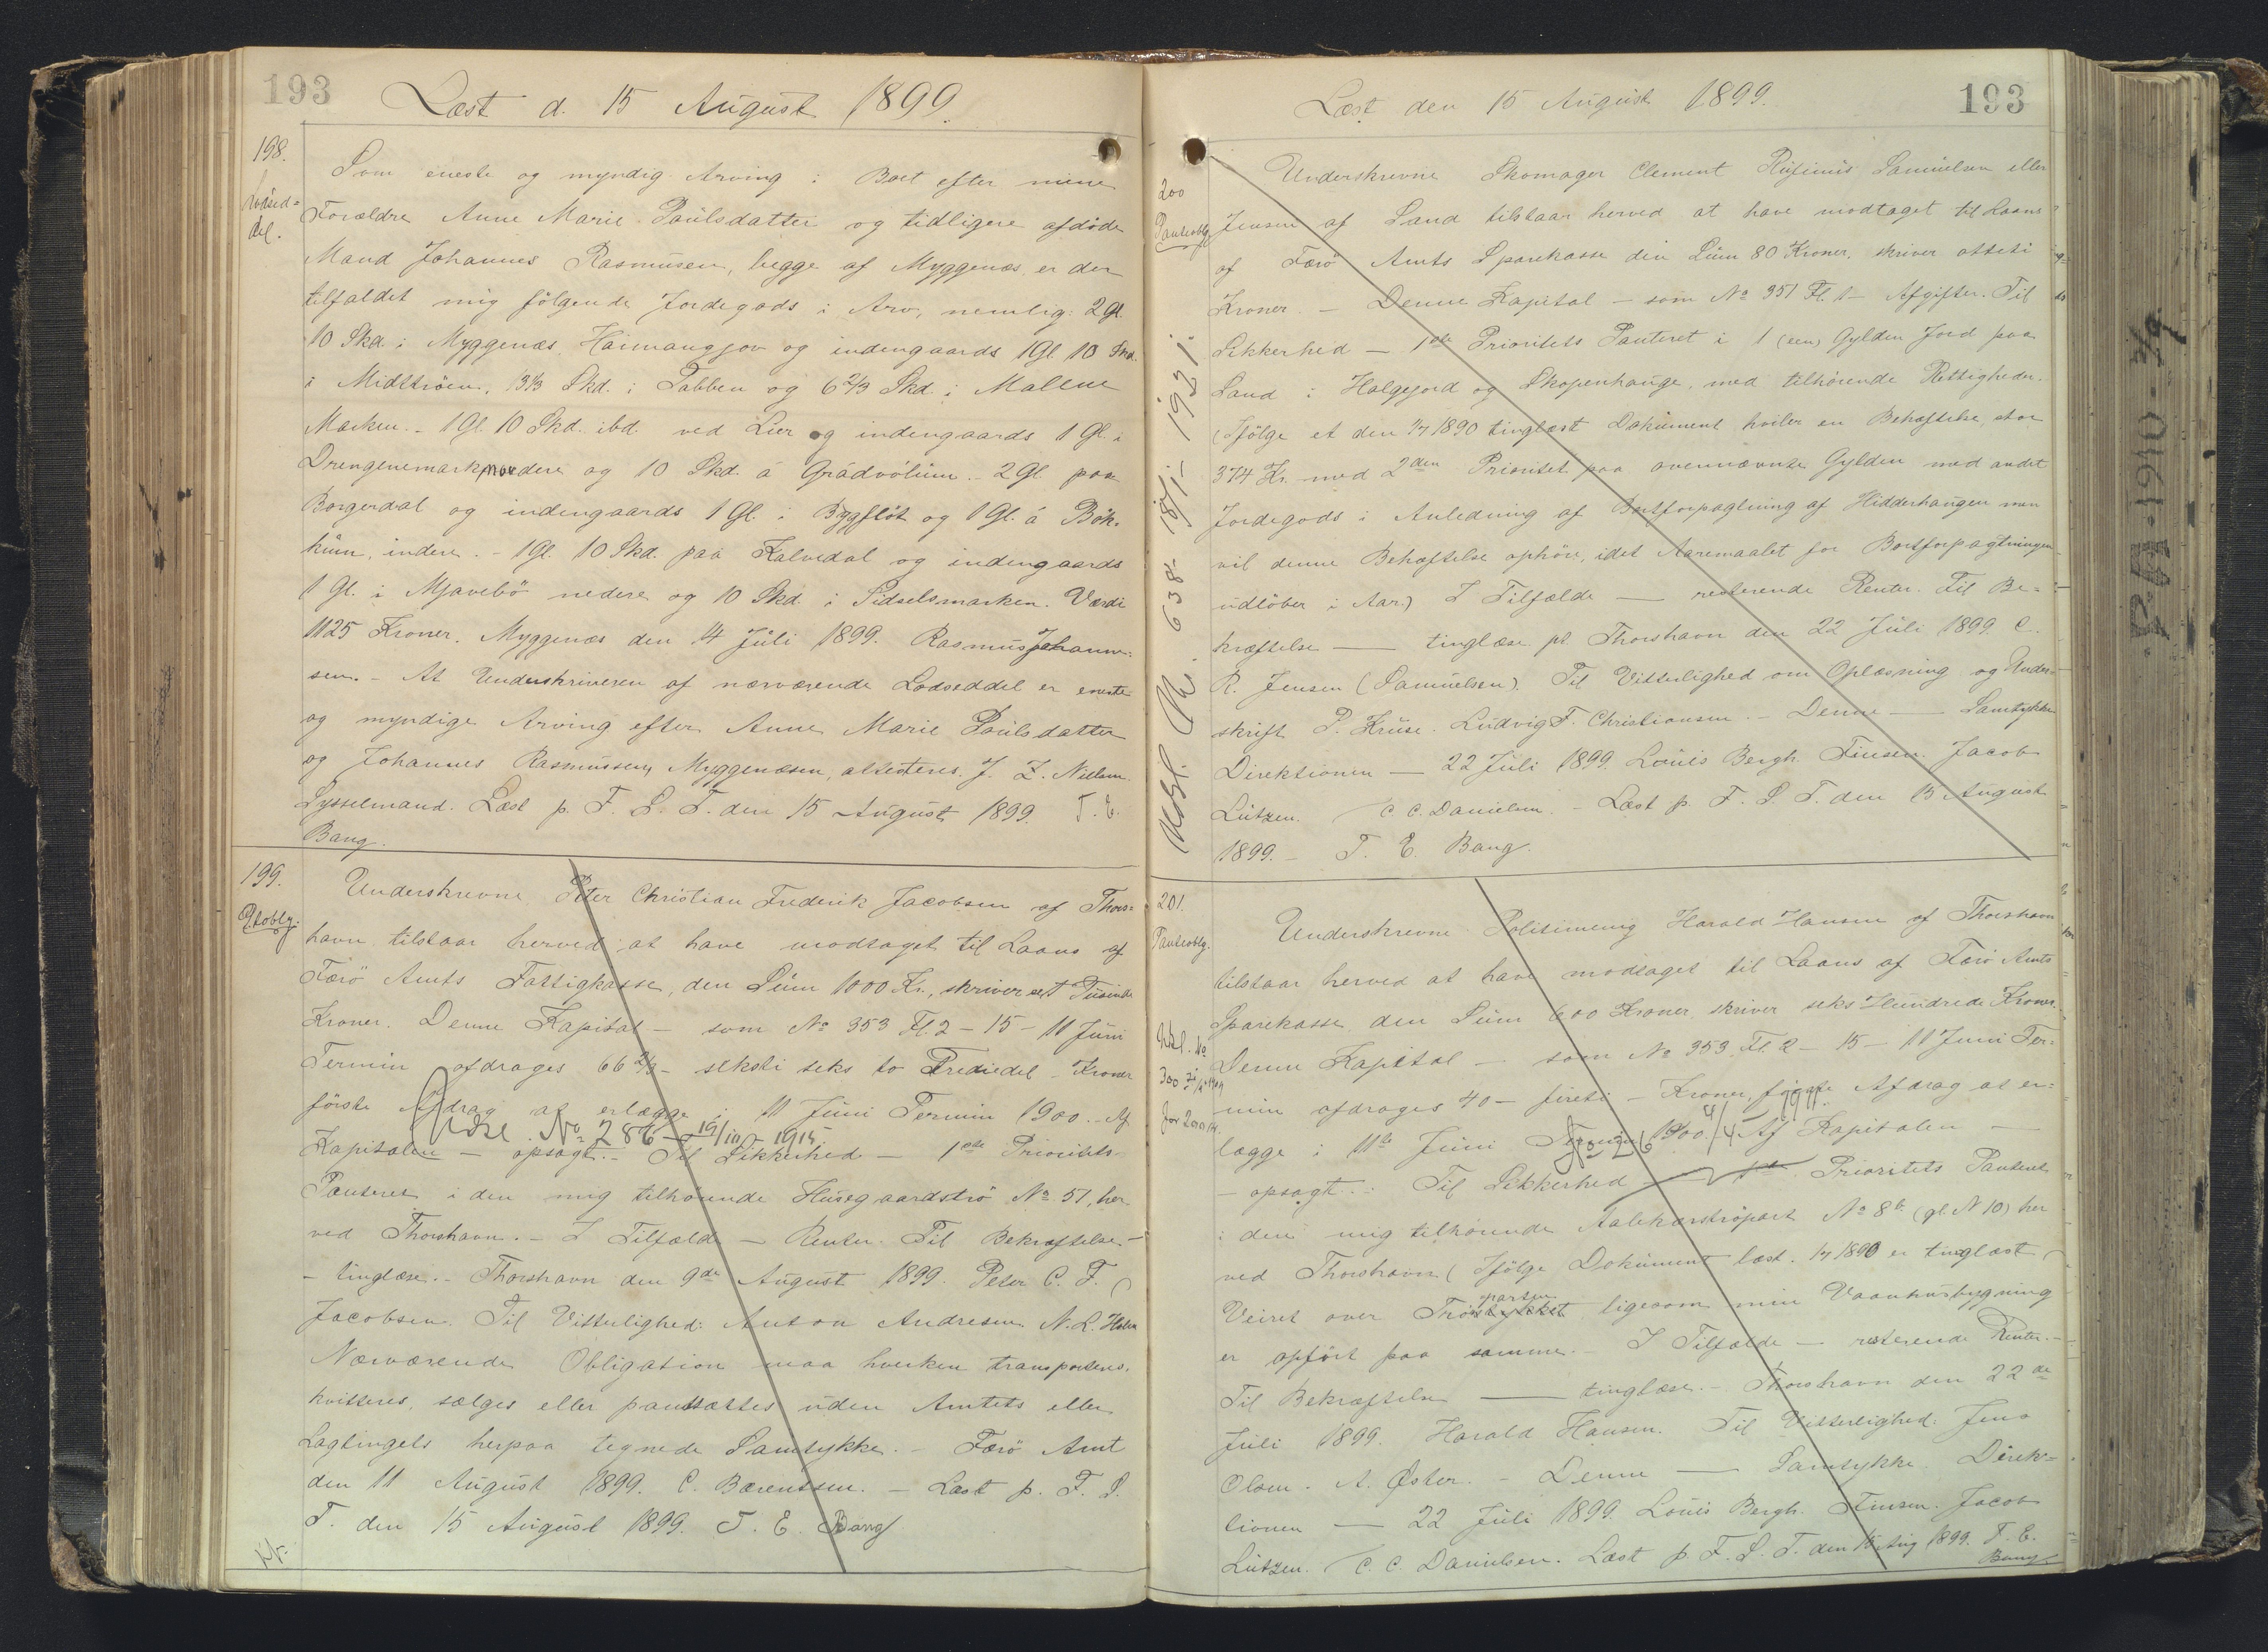 193
Læst d. 15 August 1899.
198.
Lodsed=
del.
Som eneste og myndig Arving i Boet efter mine
Forældre Anne Marie Paulsdatter og tidligere afdöde
Mand Johannes Rasmusen, begge af Myggenæs, er der
tilfaldet mig fölgende Jordegods i Arv, nemlig: 2 Gl.
10 Skd. i Myggenæs, Hannangjov og indengaards 1 Gl. 10 Skd.
i Midtströen, 13⅓ Skd. i Tabben og 6 2/3 Skd. i Mallene
Marken. - 1 Gl. 10 Skd. ibd. ved Lier og indengaards 1 Gl. i
Drengenemark nordere og 10 Skd. á Grádvólum. - 2 Gl. paa
Borgerdal og indengaards 1 Gl. i Byggflöt og 1 Gl. á Bök-
kum, indere. - 1 Gl. 10 Skd. paa Kalvedal og indengaards
1 Gl. i Mjavebö nedere og 10 Skd. i Sidselsmarken. Værdi
1125 Kroner. Myggenæs den 14 Juli 1899. Rasmus Johanne-
sen. - At Underskriveren af nærværende Lodseddel er eneste
og myndige Arving efter Anne Marie Paulsdatter
og Johannes Rasmussen, Myggenæsen, attesteres. J. Z. Nielsen
Sysselmand. Læst p. F. S. T. den 15 August 1899. T. E.
Bang.
199.
Ptobly.
Underskrevne Peter Christian Frederik Jacobsen af Thors=
havn tilstaar herved at have modtaget til Laans af
Færö Amts Fattigkasse, den Sum 1000 Kr., skriver eet Tusinde
Kroner. Denne Kapital - som No 353 Fl. 2 - 15 - 11 Juni
Termin afdrages 66 2/3 - seksti seks to Trediedel - Kroner
förste Afdrag at erlægge i 11 Juni Termin 1900. - Af
Udsl. No 286 - 19/10 - 1915
Kapitalen - opsagt. - Til Sikkerhed - 1ste Prioritets
Panteret i den mig tilhörende Husegaardströ No 51, her-
ved Thorshavn. - I Tilfælde - Renter. Til Bekræftelse -
- tinglæse. - Thorshavn den 9de August 1899. Peter C. F.
Jacobsen. Til Vitterlighed: Anton Andresen N. L. Holm
Nærværende Obligation maa hverken transporteres,
kvitteres, sælges eller pantsættes uden Amtets eller
Lagtingets herpaa tegnede Samtykke. - Færö Amt
den 11 August 1899. C. Bærentsen. - Læst p. F. S.
T. den 15 August 1899. T. E. Bang
193
Læst den 15 August 1899.
200
Panteobly.
Underskrevne Skomager Clement Rufinus Samuelsen eller
Jensen af Sand tilstaar herved at have modtaget til Laans
af Færö Amts Sparekasse den Sum 80 Kroner, skriver otteti
Kroner. - Denne Kapital - som No 351 Fl. 1 - Afgifter. Til
Sikkerhed - 1ste Prioritets Panteret i 1 (een) Gylden Jord paa
Sand i Holgejord og Skopenhauge, med tilhörende Rettigheder.
(Ifölge et den 1/7 1890 tinglæst Dokument hviler en Behæftelse, stor
374 Kr. med 2den Prioritet paa ovennævnte Gylden med andet
Jordegods i Anledning af Bortforpagtning af Hidderhaugen men
vil denne Behæftelse ophöre, idet Aaremaalet for Bortforpagtningen
udlöber i Aar.) I Tilfælde - resterende Renter. Til Be=
kræftelse - tinglæse pt. Thorshavn den 22 Juli 1899. C.
R. Jensen (Samuelsen). Til Vitterlighed om Oplæsning og Under-
skrift P. Kruse. Ludvig F. Christiansen. - Denne - Samtykke
Direktionen - 22 Juli 1899. Louis Bergh. Finsen. Jacob
Lützen. C. C. Danielsen. - Læst p. F. S. T. den 15 August
1899. - T. E. Bang.
Udsl. No. 638 - 18/1 - 1921.
201.
Panteobly.
Underskrevne Politimenig Harald Hansen af Thorshavn
tilstaar herved at have modtaget til Laans af Færö Amts
Sparekasse den Sum 600 Kroner, skriver seks Hundrede Kroner.
Denne Kapital - som No 353 Fl. 2 - 15 - 11 Juni Ter=
min afdrages 40 - fireti - Kroner, förste Afdrag at er=
lægge i 11te Juni Termin 1900. - Af Kapitalen -
- opsagt. - Til Sikkerhed - 1ste Prioritets Panteret
i den mig tilhörende Aalekærströpart No 8b (gl. N 10) her
ved Thorshavn (Ifölge Dokument læst. 1/7 1890 er tinglæst
parten
Veiret over Tröstykket ligesom min Vaanhusbygning
er opfört paa samme. - I Tilfælde - resterende Renter. -
Til Bekræftelse - tinglæse. - Thorshavn den 22de
Juli 1899. Harald Hansen. Til Vitterlighed: Jens
Olsen. A. Öster. - Denne - Samtykke. Direk=
tionen - 22 Juli 1899. Louis Bergh. Finsen. Jacob
Lützen. C. C. Danielsen. Læst p. F. S. T. den 15 Aug 1899. T. E.
Bang